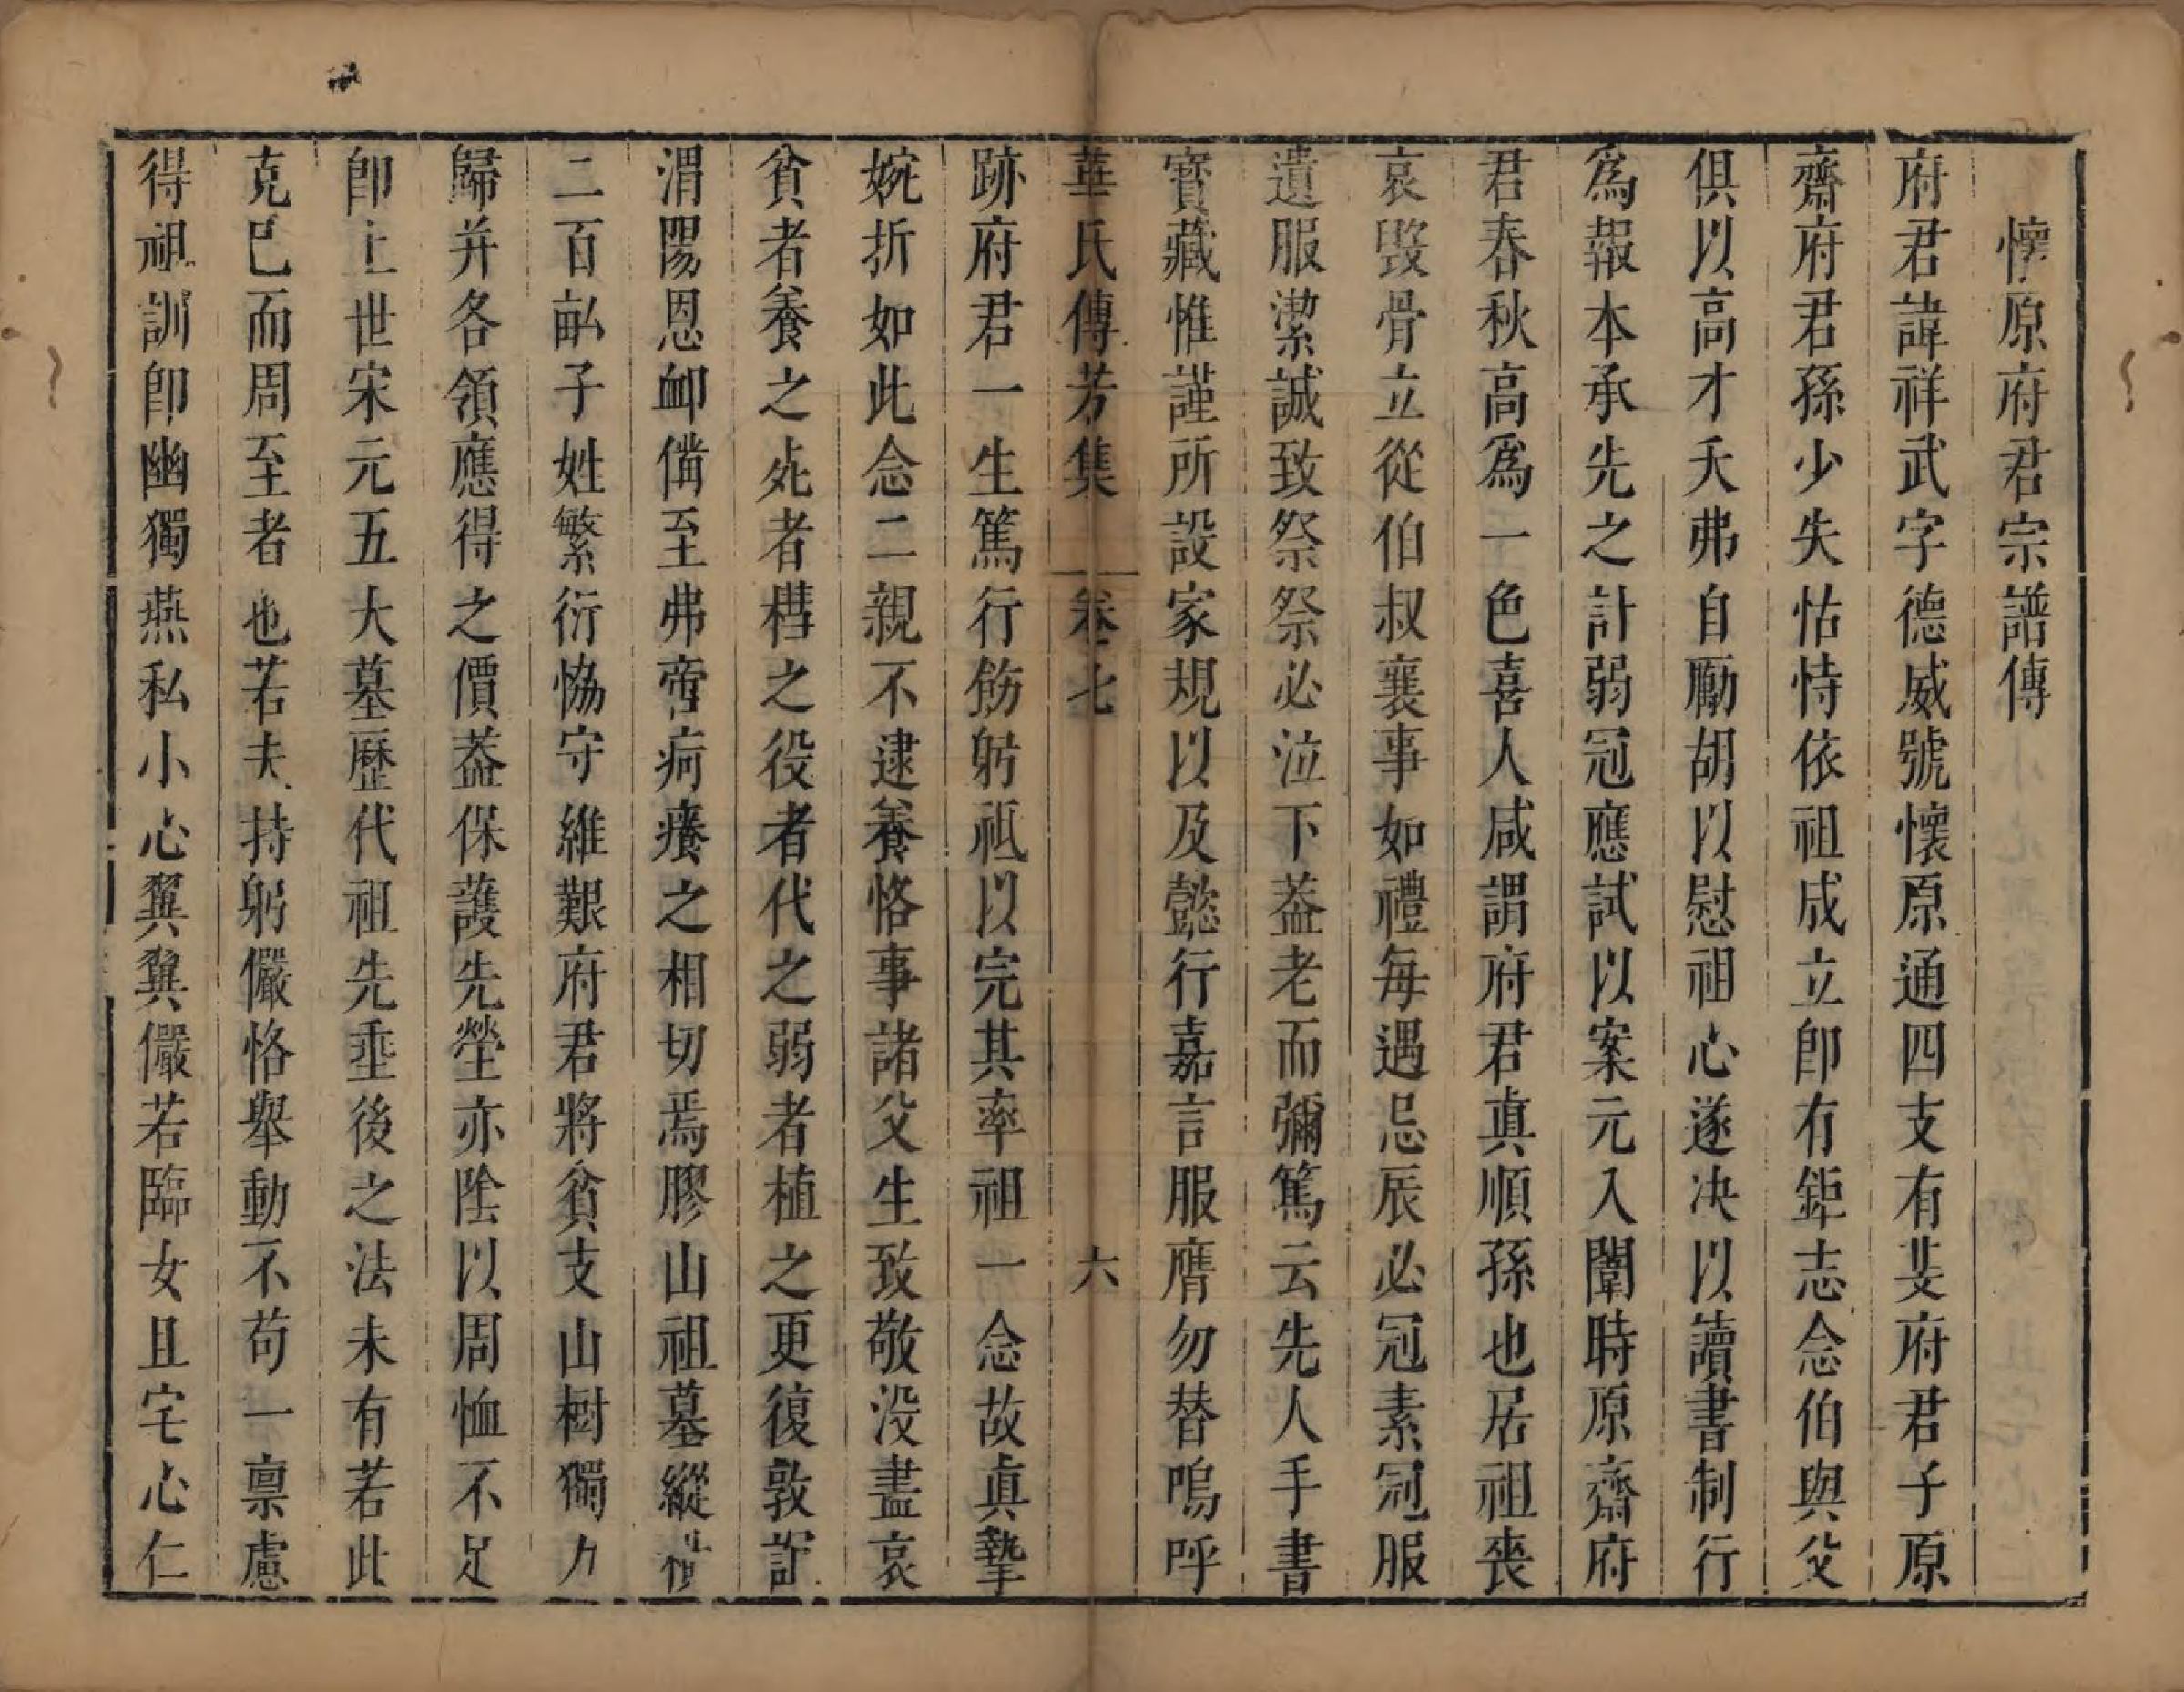 懷原府君宗譜傳
府君諱祥武字德威號懷原通四支有斐府君子原
齋府君孫少失怙恃依祖成立卽有鉅志念伯與父
俱以高才夭弗自勵胡以慰祖心遂决以讀書制行
爲報本承先之計弱冠應試以案元入闈時原齋府
君春秋高爲一色喜人咸謂府君真順孫也居祖喪
哀毀骨立從伯叔襄事如禮每遇忌辰必冠素冠服
遺服潔誠致祭祭必泣下葢老而彌篤云先人手書
寶藏惟謹所設家規以及懿行嘉言服膺勿替嗚呼
華氏傳芳集 卷七 六
跡府君一生篤行飭躬祗以完其率祖一念故真摯
婉折如此念二親不逮養恪事諸父生致敬没盡哀
貧者養之死者槥之役者代之弱者植之更復敦記
渭陽恩卹備至弗啻疴癢之相切焉膠山祖墓縱橫
二百畝子姓繁衍恊守維艱府君將貧支山樹獨力
歸并各領應得之價葢保護先塋亦陰以周恤不足
卽上世宋元五大墓歷代祖先垂後之法未有若此
克已而周至者也若夫持躬儼恪舉動不苟一禀慮
得祖訓卽幽獨燕私小心翼翼儼若臨女且宅心仁